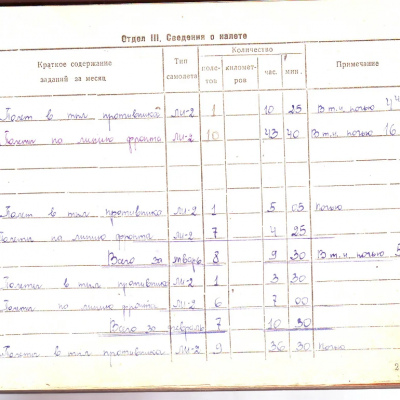 Отдел III. Сведения о налете
Краткое содержание заданий за месяц Тип самолета Количество полетов километров час. мин. Примечание
Полет в тыл противника Ли-2 1 10 25 В т.ч. ночью
Полеты по линию фронта Ли-2 10 43 40 В т.ч. ночью 16
Полет в тыл противника Ли-2 1 5 05 Ночью
Полеты по линию фронта Ли-2 7 4 25
Всего за январь 8 9 30 В т.ч. ночью 5
Полеты в тыл противника Ли-2 1 3 30
Полеты по линию фронта Ли-2 6 7 00
Всего за февраль 7 10 30
Полеты в тыл противника Ли-2 9 36 30 Ночью
2